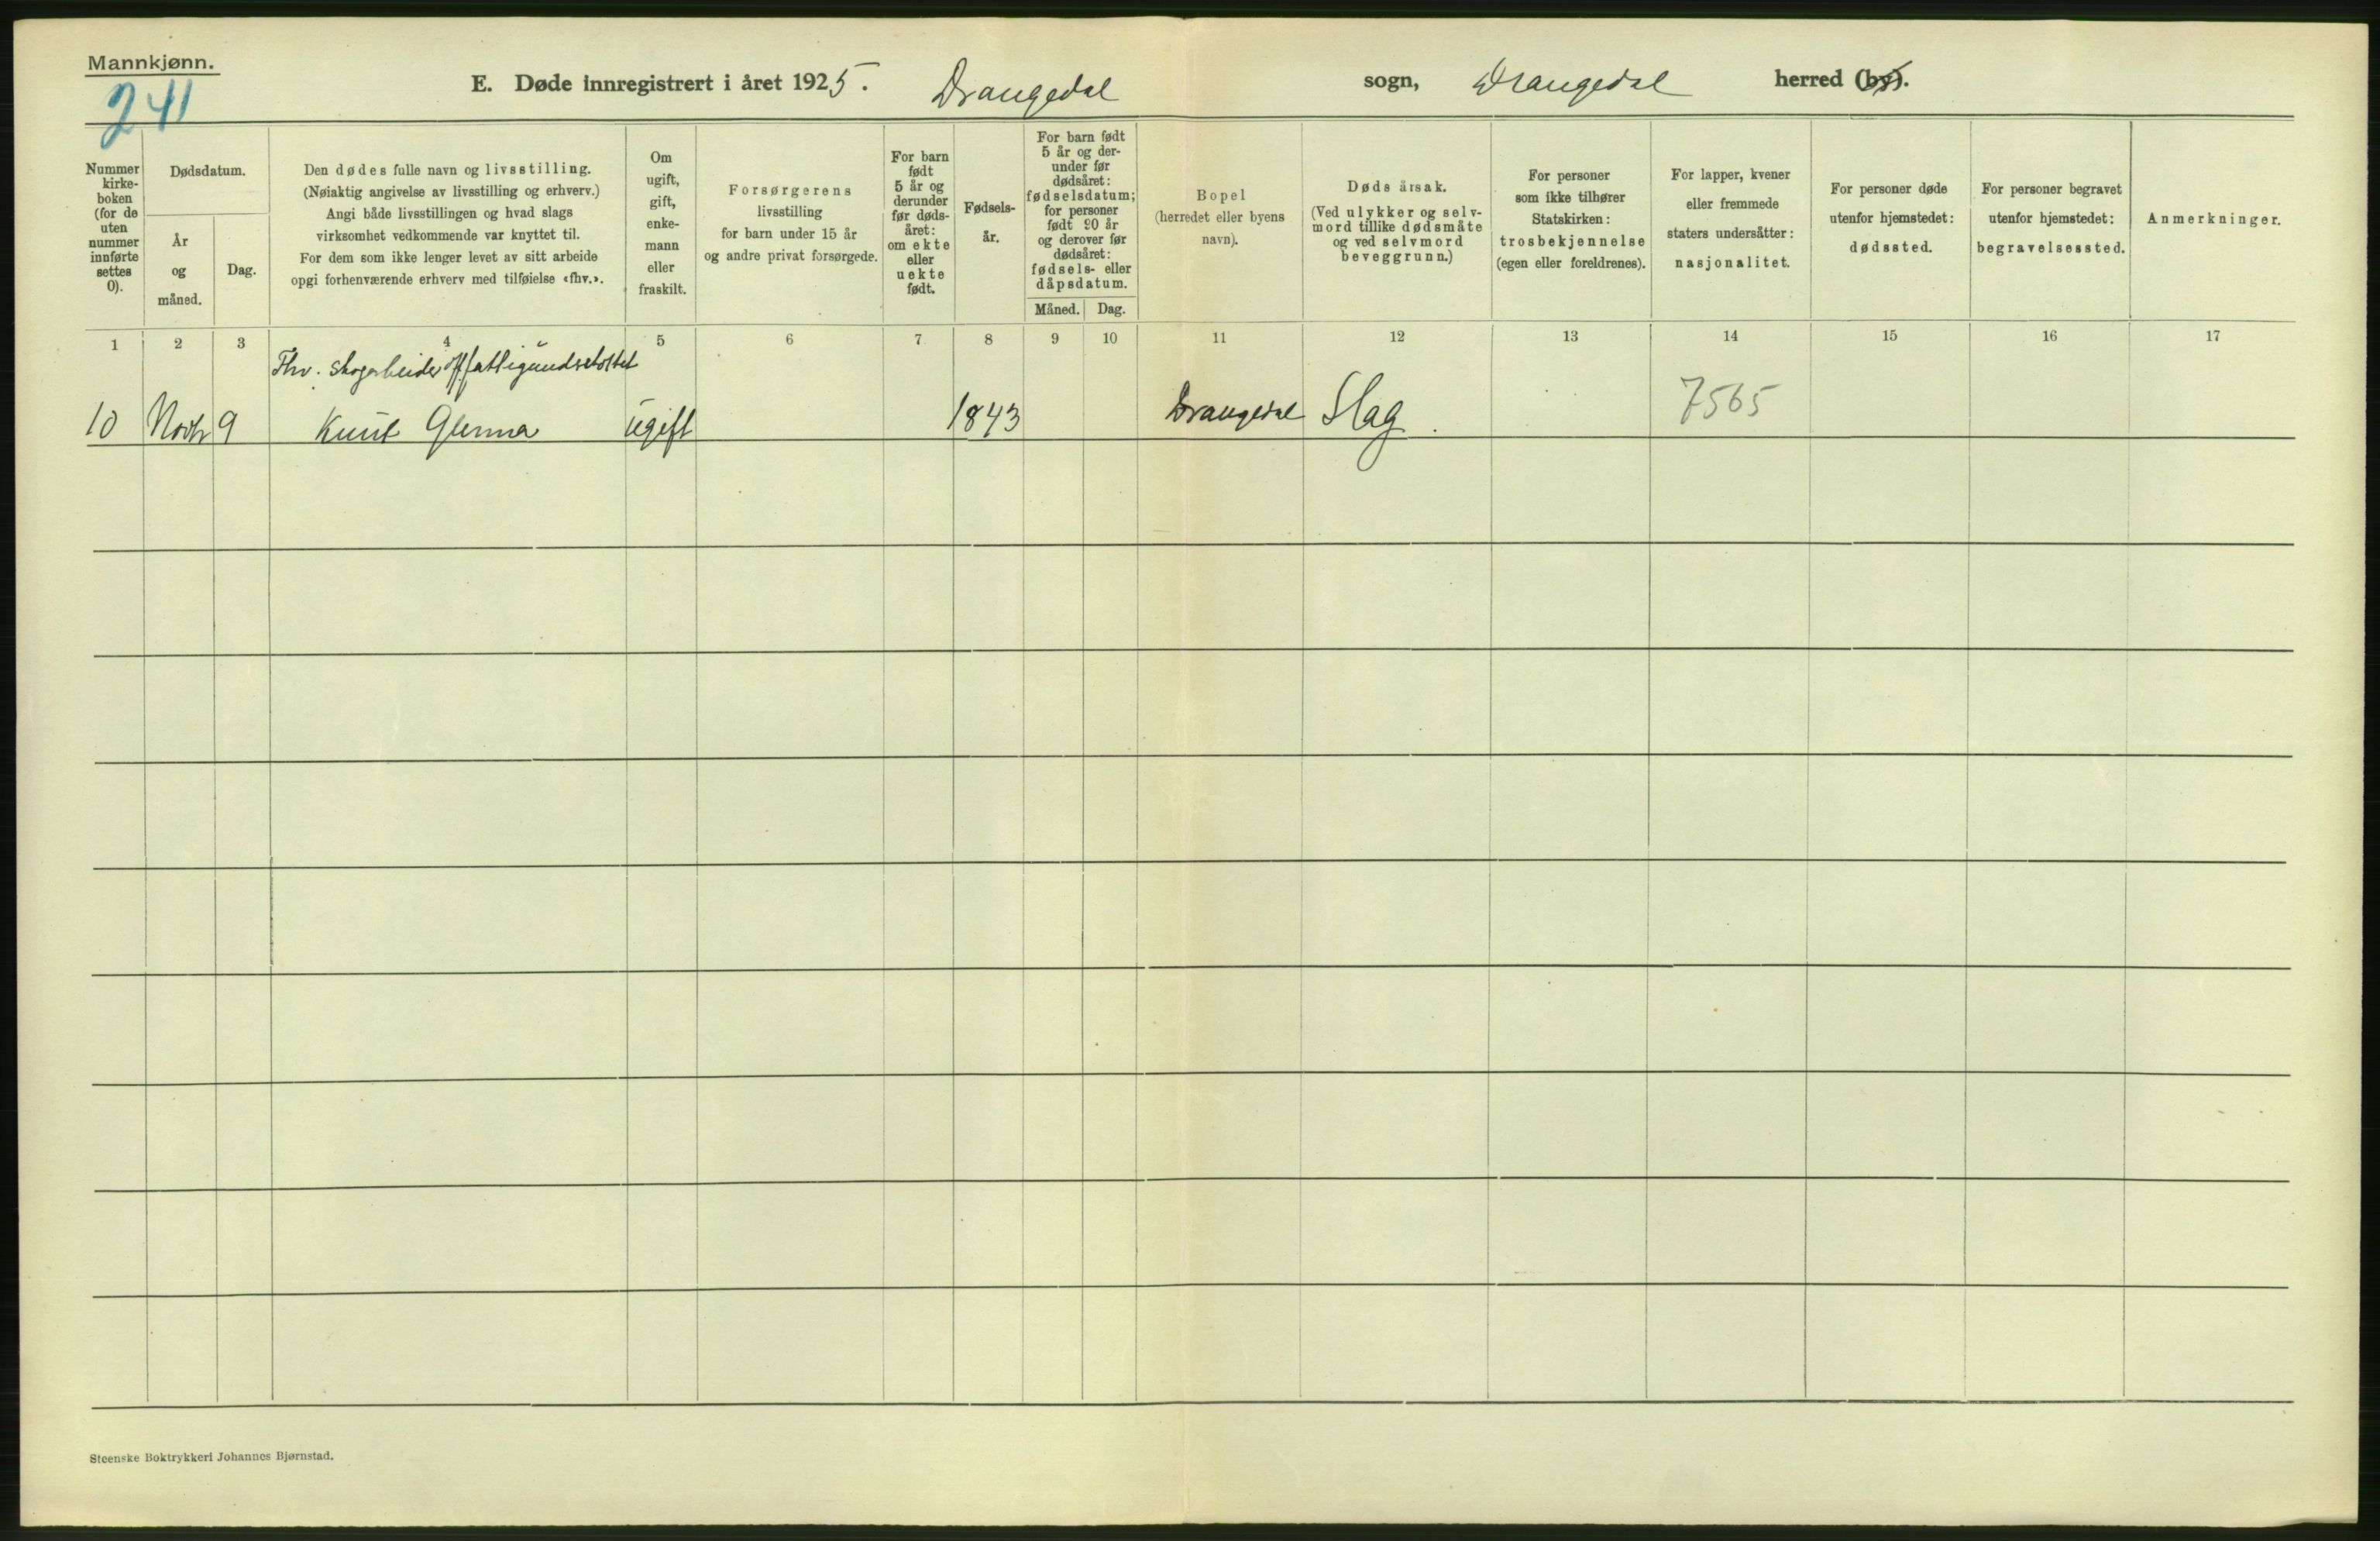 Mannkjønn.
241
E. Døde innregistrert i året 1925. Drangedal sogn, Drangedal herred (by).
Nummer
kirke-
boken
(for de
uten
nummer
innførte
settes
0).
Dødsdatum.
År
og
måned.
Dag.
Den dødes fulle navn og livsstilling.
(Nøiaktig angivelse av livsstilling og erhverv.)
Angi både livsstillingen og hvad slags
virksomhet vedkommende var knyttet til.
For dem som ikke lenger levet av sitt arbeide
opgi forhenværende erhverv med tilføielse «fhv.».
Om
ugift,
gift,
enke-
mann
eller
fraskilt.
Forsørgerens
livsstilling
for barn under 15 år
og andre privat forsørgede.
For barn
født
5 år og
derunder
før døds-
året:
om ekte
eller
uekte
født.
Fødsels-
år.
For barn født
5 år og der-
under før
dødsåret:
fødselsdatum;
for personer
født 90 år
og derover før
dødsåret:
fødsels- eller
dåpsdatum.
Måned. Dag.
Bopel
(herredet eller byens
navn).
Døds årsak.
(Ved ulykker og selv-
mord tillike dødsmåte
og ved selvmord
beveggrunn.)
For personer
som ikke tilhører
Statskirken:
trosbekjennelse
(egen eller foreldrenes).
For lapper, kvener
eller fremmede
staters undersåtter:
nasjonalitet.
For personer døde
utenfor hjemstedet:
dødssted.
For personer begravet
utenfor hjemstedet:
begravelsessted.
Anmerkninger.
1 2 3 4 5 6 7 8 9 10 11 12 13 14 15 16 17
Fhv. skogarbeider off fattigunderstøttet
10 Novbr 9 Knut Glenna ugift 1843 Drangedal Slag. 7565
Steenske Boktrykkeri Johannes Bjørnstad.